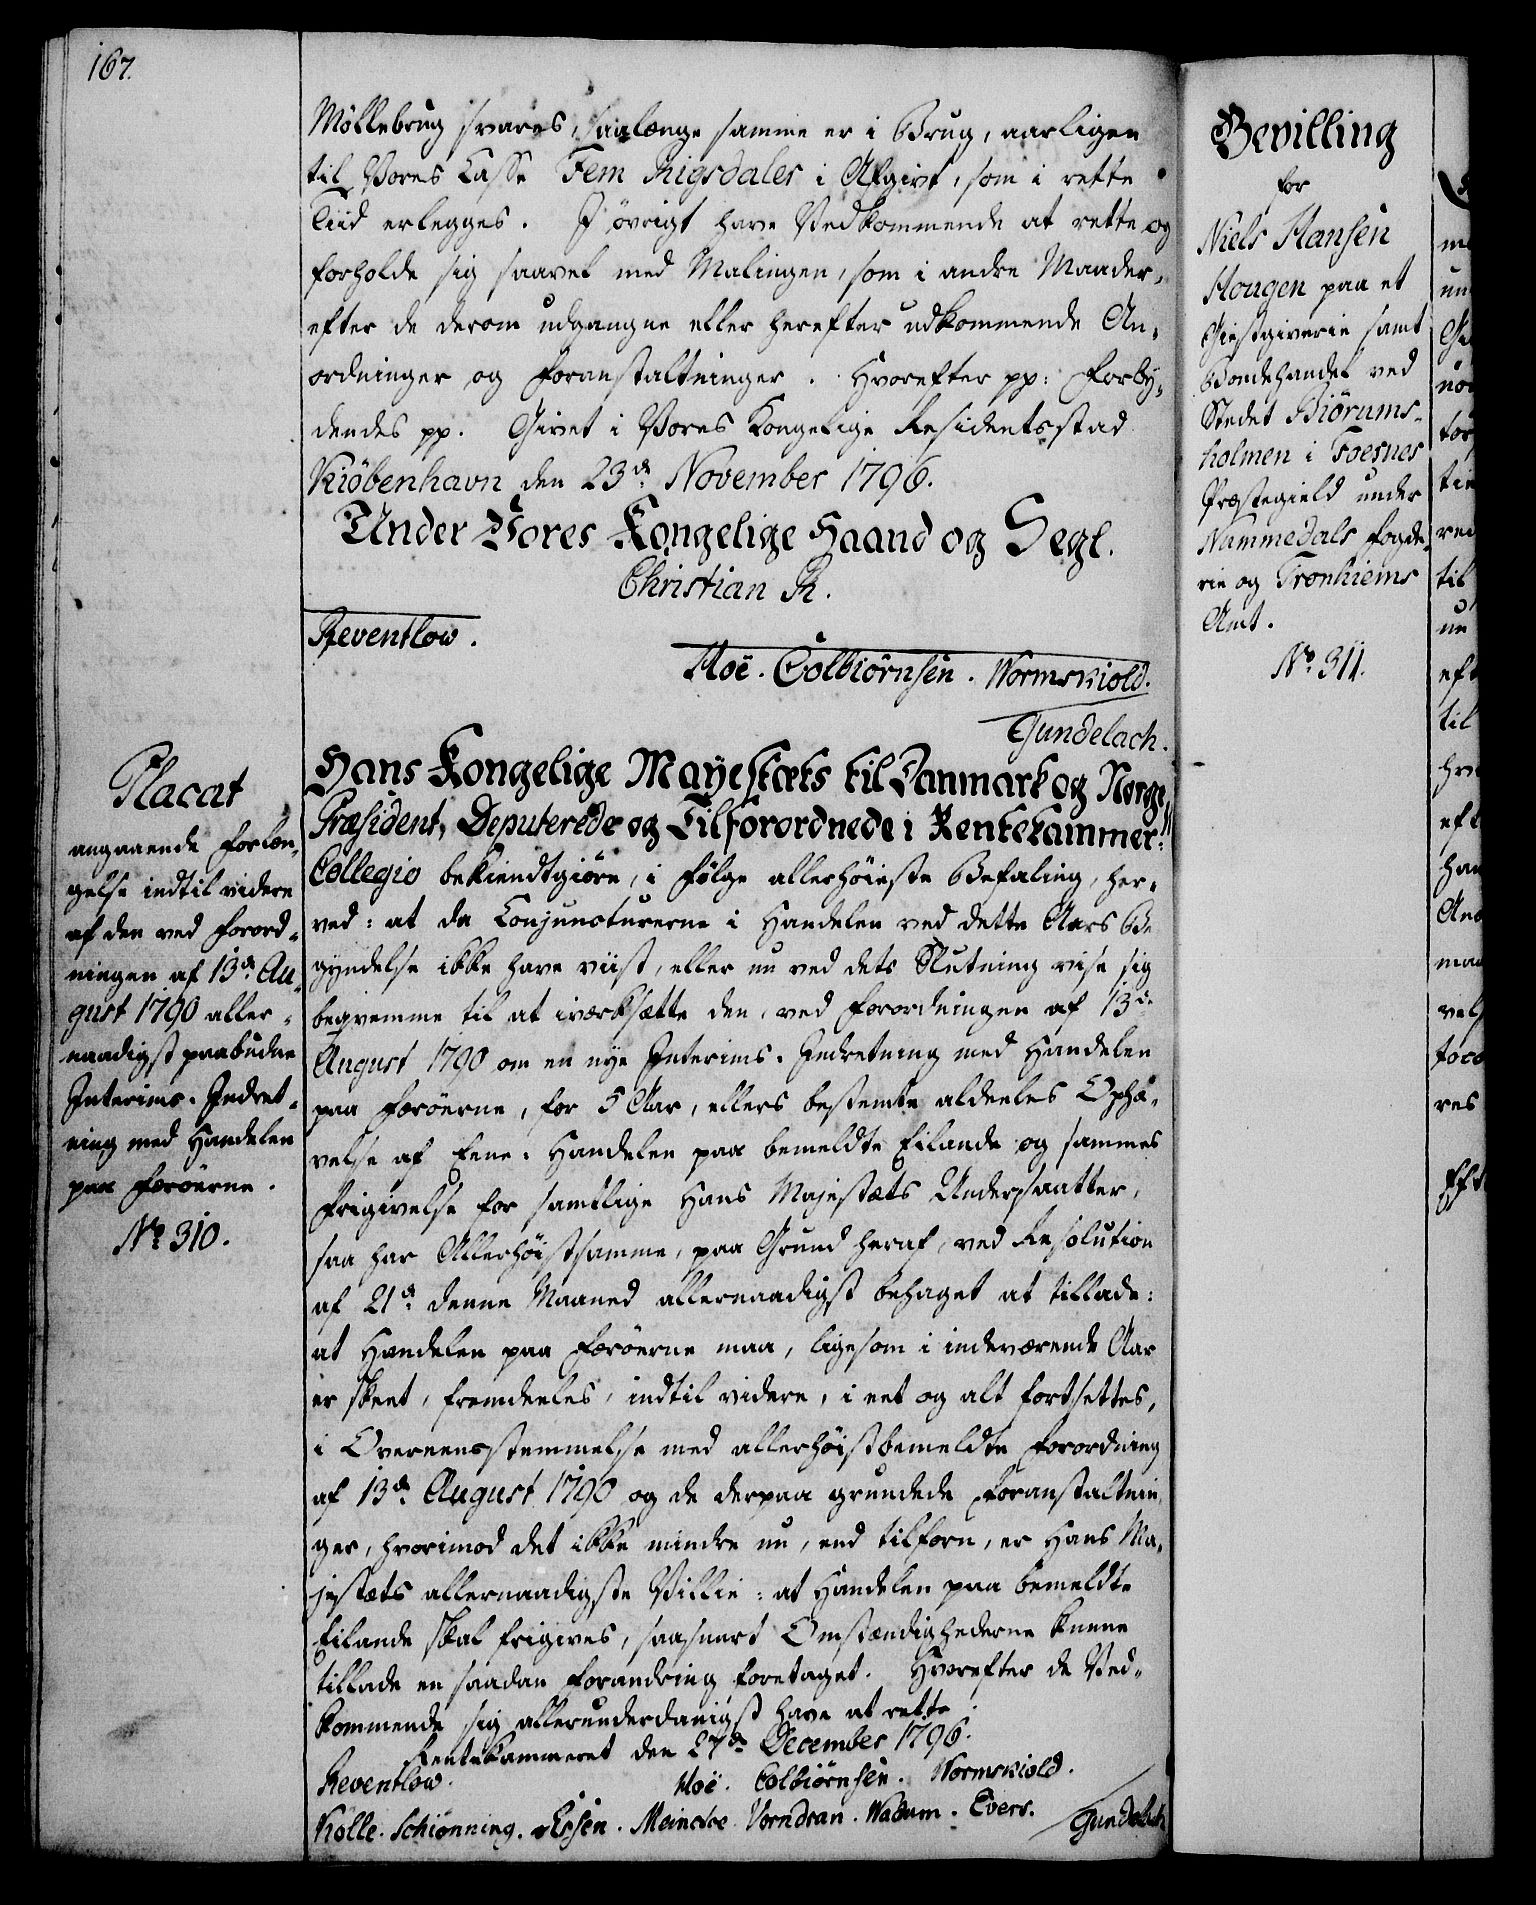 167.
Möllebrug svares, saalænge samme er i Brug, aarligen
til Vores Casse Fem Rigsdaler i Afgivt, som i rette
Tiid erlegges. I övrigt have Vedkommende at rette og
forholde sig saavel med Malingen, som i andre Maader,
efter de derom udgangne eller herefter udkommende An-
ordninger og Foranstaltninger. Hvorefter pp: Forby-
dendes pp. Givet i Vores Kongelige Residentsstad
Kiöbenhavn den 23de November 1796.
Under Vores Kongelige Haand og Segl.
Christian R.
Reventlow.
Hoë. Colbiörnsen. Wormskiold.
Gundelach.
Placat
angaaende Forlæn-
gelse indtil videre
af den ved Forord-
ningen af 13de Au-
gust 1790 aller-
naadigst paabudne
Interims-Indret-
ning med Handelen
paa Færöerne.
No 310.
Hans Kongelige Mayestæts til Danmark og Norge
Præsident, Deputerede og Tilforordnede i Rentekammer-
Collegio bekiendtgiöre, i Fölge allerhöieste Befaling, her-
ved: at da Conjuncturerne i Handelen ved dette Aars Be
gyndelse ikke have viist, eller nu ved dets Slutning vise sig
beqvemme til at iværksætte den, ved Forordningen af 13de
August 1790 om en nye Interims-Indretning med Handelen
paa Færöerne, for 5 Aar, ellers bestemte aldeeles Ophæ-
velse af Eene-Handelen paa bemeldte Eilande og sammes
Frigivelse for samtlige Hans Majestæts Undersaatter,
saa har Allerhöistsamme, paa Grund heraf, ved Resolution
af 21de denne Maaned allernaadigst behaget at tillade:
at Handelen paa Færöerne maa, ligesom i indeværende Aar
er skeet, fremdeeles, indtil videre, i eet og alt fortsettes,
i Overeensstemmelse med allerhöistbemeldte Forordning
af 13de August 1790 og de derpaa grundede Foranstaltnin
ger, hvorimod det ikke mindre nu, end tilforn, er Hans Ma-
jestæts allernaadigste Villie: at Handelen paa bemeldte
Eilande skal frigives, saasnart Omstændighederne kunne
tillade en saadan Forandring foretaget. Hvorefter de Ved-
kommende sig allerunderdanigst have at rette.
Rentekammeret den 27de December 1796.
Reventlow.
Hoë. Colbiörnsen. Wormskiold.
Kolle. Schiönning. Essen. Meincke. Vorndran. Wadum. Evers.
Gundelach
Bevilling
for
Niels Hansen
Hougen paa et
Giestgiverie samt
Bondehandel ved
Stedet Biörums-
holmen i Foesnes
Præstegield under
Nammedals Fogde-
rie og Tronhiems
Amt.
No 311.